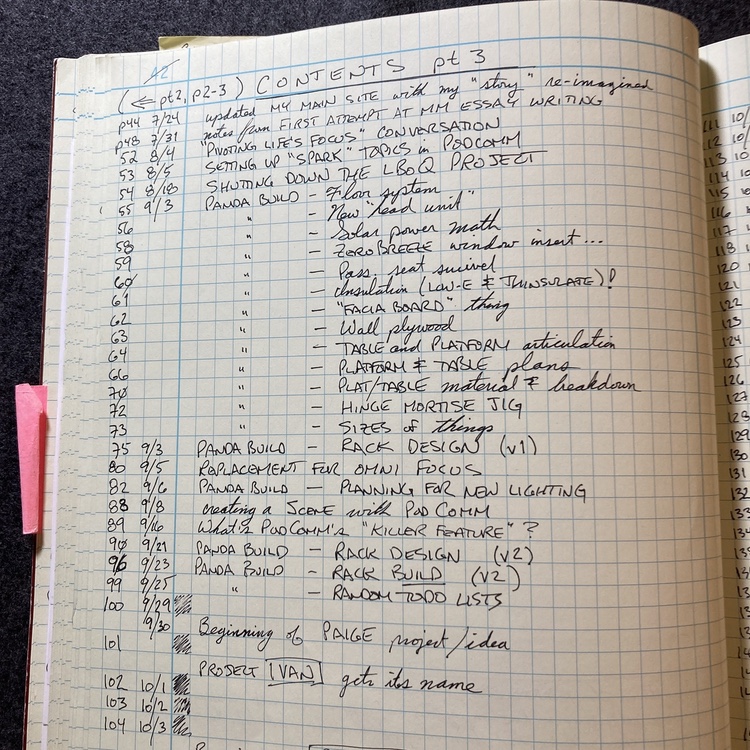 42
(⇐ pt2, p2-3) CONTENTS pt 3
p44 7/24 updated MY MAIN SITE with my "story" re-imagined
p48 7/31 notes from FIRST ATTEMPT AT MM ESSAY WRITING
52 8/4 "PIVOTING LIFE'S FOCUS" CONVERSATION
53 8/5 SETTING UP "SPARK" TOPICS in PODCOMM
54 8/18 SHUTTING DOWN THE LBOQ PROJECT
55 9/3 PANDA BUILD - Floor system
" - New "read unit"
56 " - Solar power math
58 " - ZEROBREEZE window insert...
59 " - Pass. seat swivel
60 " - insulation (LOW-E & THINSULATE)!
61 " - "FACIA BOARD" thing
62 " - Wall plywood
63 " - TABLE and PLATFORM articulation
64 " - PLATFORM & TABLE plans
66 " - PLAT/TABLE material & breakdown
70 " - HINGE MORTISE JIG
72 " - SIZES of things
73
75 9/3 PANDA BUILD - RACK DESIGN (v1)
80 9/5 REPLACEMENT FOR OMNI FOCUS
82 9/6 PANDA BUILD - PLANNING FOR NEW LIGHTING
88 9/8 creating a SCENE with POD COMM
89 9/16 WHAT'S PODCOMM'S "KILLER FEATURE"?
90 9/21 PANDA BUILD - RACK DESIGN (v2)
96 9/23 PANDA BUILD - RACK BUILD (v2)
99 9/25 " - RANDOM TODO LISTS
100 9/29
9/30 Beginning of PAIGE project/idea
101
PROJECT IVAN gets its name
102 10/1
103 10/2
104 10/3
111 10/
112 10/
113 10
114 10
115 10
116
117
118
120
121
122
123
124
125
126
127
128
129
130
131
132
133